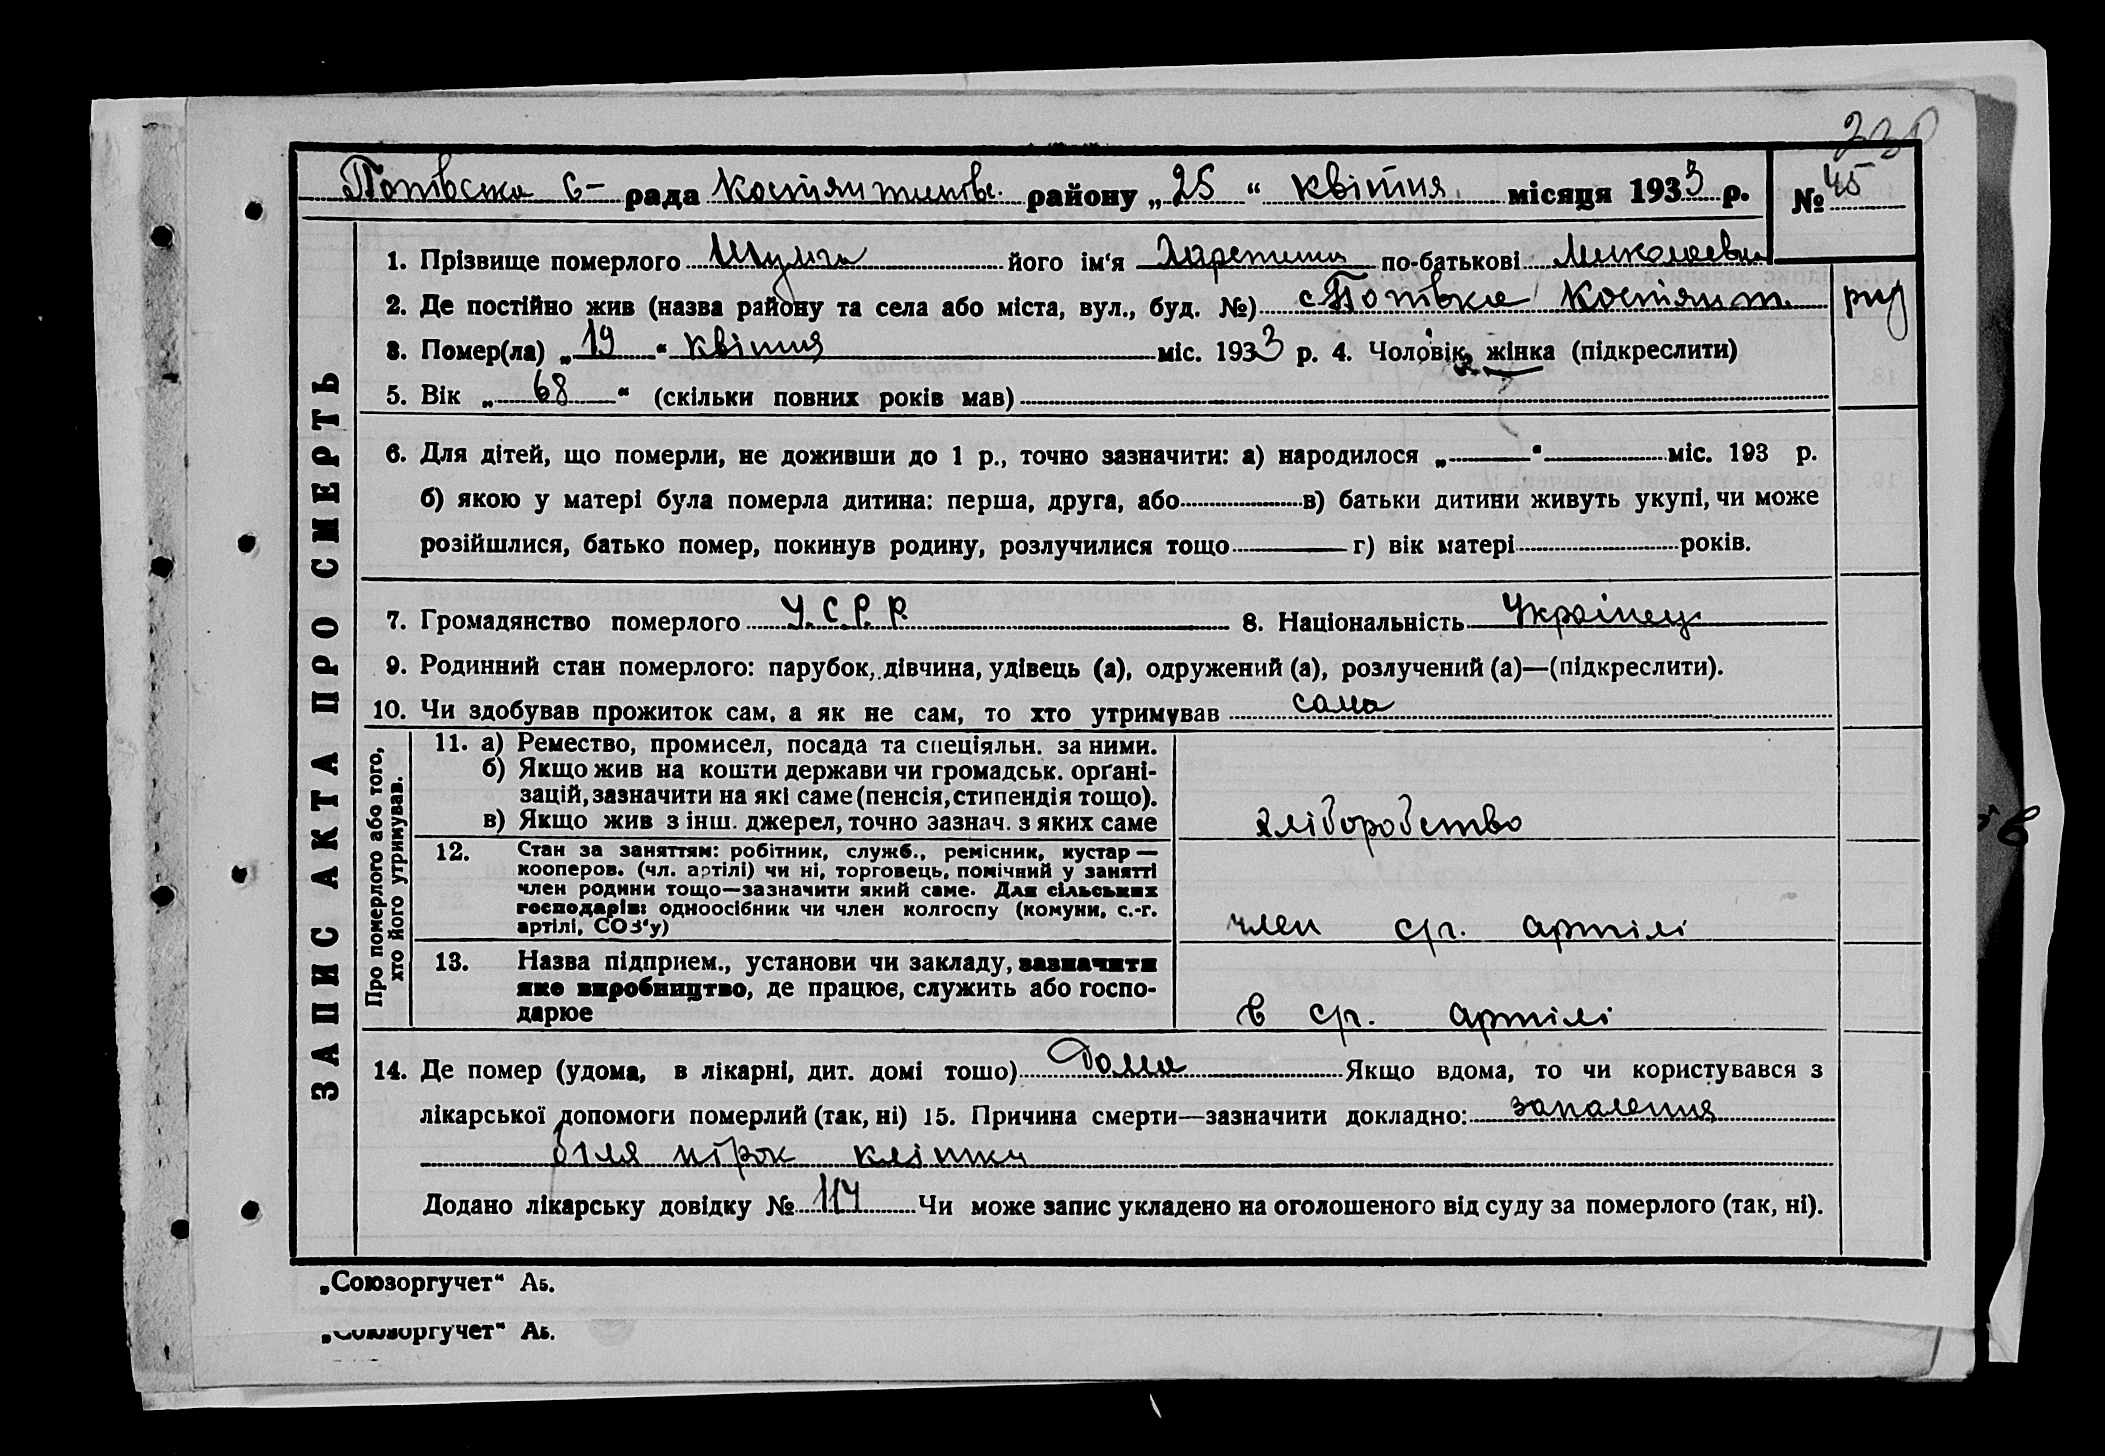 Попівська с- рада Костянтинівс. району „25“ квітня місяця 1933 р. № 45
1. Прізвище померлого Шульга його ім‘я по-батькові
2. Де постійно жив (назва району та села або міста, вул., буд. №) с Попівка Костянт.
3. Помер(ла) „19“ квітня міс. 1933 р. 4. Чоловік, жінка (підкреслити)
5. Вік „68“ (скільки повних років мав)
6. Для дітей, що померли, не доживши до 1 р., точно зазначити: а) народилося „ “ міс. 193 р.
б) якою у матері була померла дитина: перша, друга, або в) батьки дитини живуть укупі, чи може
розійшлися, батько помер, покинув родину, розлучилися тощо г) вік матері років.
7. Громадянство померлого У.С.Р.Р. 8. Національність Українец
9. Родинний стан померлого: парубок, дівчина, удівець (а), одружений (а), розлучений (а)—(підкреслити).
10. Чи здобував прожиток сам, а як не сам, то хто утримував сама
ЗАПИС АКТА ПРО СМЕРТЬ
Про померлого або того,
хто його утримував.
11. а) Ремество, промисел, посада та спеціяльн. за ними.
б) Якщо жив на кошти держави чи громадськ. орґані-
зацій, зазначити на які саме (пенсія, стипендія тощо).
в) Якщо жив з інш. джерел, точно зазнач. з яких саме
хліборобство
12. Стан за заняттям: робітник, служб., ремісник, кустар —
кооперов. (чл. артілі) чи ні, торговець, помічний у занятті
член родини тощо—зазначити який саме. Для сільських
господарів: одноосібник чи член колгоспу (комуни, с.-г.
артілі, СОЗ‘у)
член с/г. артілі
13. Назва підприєм., установи чи закладу, зазначити
яке виробництво, де працює, служить або госпо-
дарює
в с/г. артілі
14. Де помер (удома, в лікарні, дит. домі тощо) Дома Якщо вдома, то чи користувався з
лікарської допомоги померлий (так, ні) 15. Причина смерти—зазначити докладно: запалення
біля нірок клітки
Додано лікарську довідку № 114 Чи може запис укладено на оголошеного від суду за померлого (так, ні).
„Союзоргучет“ Аб.
„Союзоргучет“ Аб.